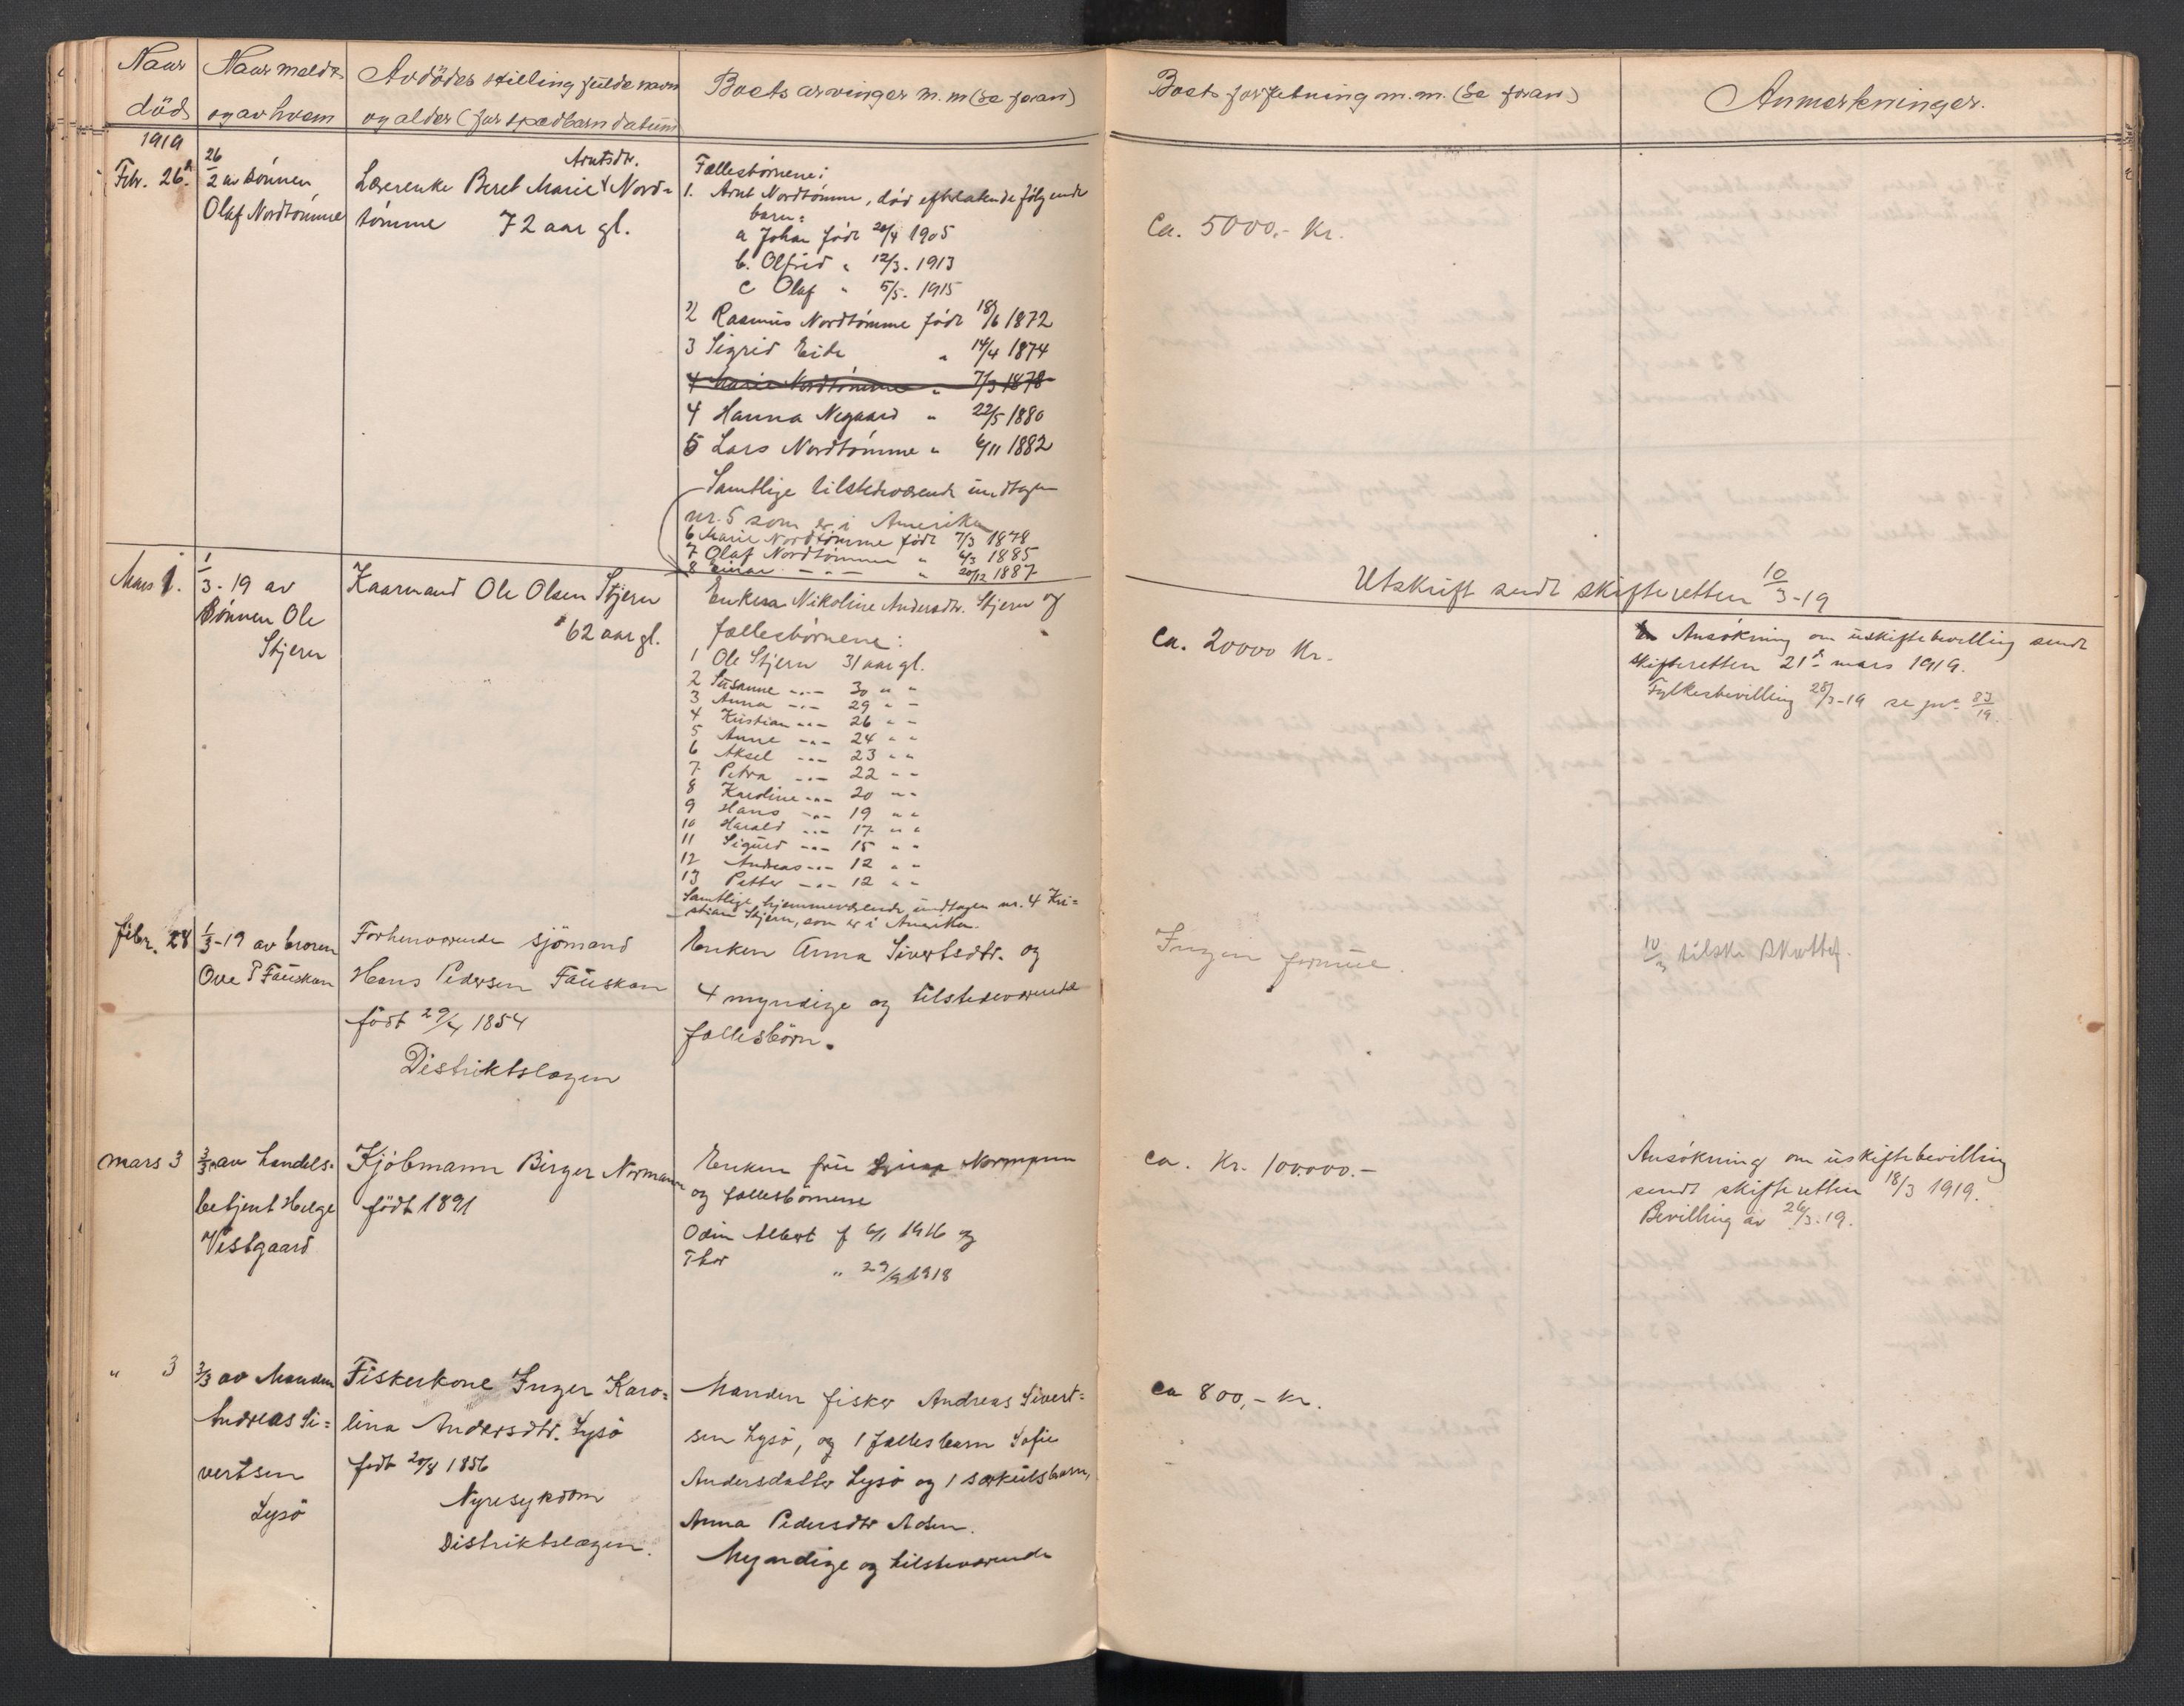 Naar
död
Naar meldt
og av hvem
Avdödes stilling fulde navn
og alder (for spædbarn datum
Boets arvinger m. m (se foran)
Boets forfatning m. m. (se foran)
Anmerkninger.
1919
Febr. 26
26/2 av sönnen
Olaf Nordtömme
Arntsdtr.
Lærerenke Beret Marie Nord=
tömme 72 aar gl.
Fællesbörnene:
1. Arnt Nordtömme, död efterlatende følgende
barn:
a Johan född 20/4 1905
b. Olfrid " 12/3. 1913
c Olaf " 5/5. 1915
2 Rasmus Nordtömme född 18/6 1872
3 Sigrid Eide " 14/4 1874
4 Marie Nordtömme " 7/3 1878
4 Hanna Negaard " 22/5 1880
5 Lars Nordtömme " 6/11 1882
Samtlige tilstedeværende undtagen
nr. 5 som er i Amerika
6 Marie Nordtömme född 7/3 1878
7 Olaf Nordtömme " 4/3 1885
8 Einar -"- " 20/12 1887
Ca. 5000,- Kr.
Utskrift sendt skifteretten 10/3-19
Mars 1.
1/3 - 19 av
sönnen Ole
Stjern
Kaarmand Ole Olsen Stjern
62 aar gl.
Enken Nikoline Andersdtr. Stjern og
fællesbörnene:
1 Ole Stjern 31 aar gl.
2 Susanne -"- 30 " "
3 Anna -"- 29 " "
4 Kristian -"- 26 " "
5 Anne -"- 24 " "
6 Aksel -"- 23 " "
7 Petra -"- 22 " "
8 Karoline -"- 20 " "
9 Hans -"- 19 " "
10 Harald -"- 17 " "
11 Sigurd -"- 15 " "
12 Andreas -"- 12 " "
13 Petter -"- 12 " "
Samtlige hjemmeværende undtagen nr. 4 Kri=
stian Stjern, som er i Amerika.
Ca. 20000 Kr.
Ansökning om uskiftebevilling sendt
skifteretten 21de mars 1919.
Fylkesbevilling 28/3-19 se jnr. 83/19.
febr. 28
1/3-19 av broren
Ove P Fauskan
Forhenværende sjömand
Hans Pedersen Fauskan
född 29/4 1854
Distriktslægen
Enken Anna Sivertsdtr. og
4 myndige og tilstedeværende
fællesbörn.
Ingen formue.
10/3 tilskr Skattef.
mars 3
3/3 av handels=
betjent Helge
Vestgaard
Kjöbmann Birger Normann
född 1891
Enken fru Normann
og fællesbörnene
Odin Albert f 6/1 1916 og
Thor " 29/9 1918
Ca. Kr. 100.000.-
Ansökning om uskiftebevilling
sendt skifteretten 18/3 1919.
Bevilling av 26/3-19.
" 3
3/3 av Manden
Andreas Si=
vertsen
Lysö
Fiskerkone Inger Karo=
lina Andersdtr. Lysö
född 20/8 1856
Nyresykdom
Distriktslægen.
Manden fisker Andreas Sivert=
sen Lysö, og 1 fællesbarn Sofie
Andersdatter Lysö og 1 særkulsbarn,
Anna Pedersdtr Aden.
Myndige og tilstedeværende
Ca 800,- Kr.